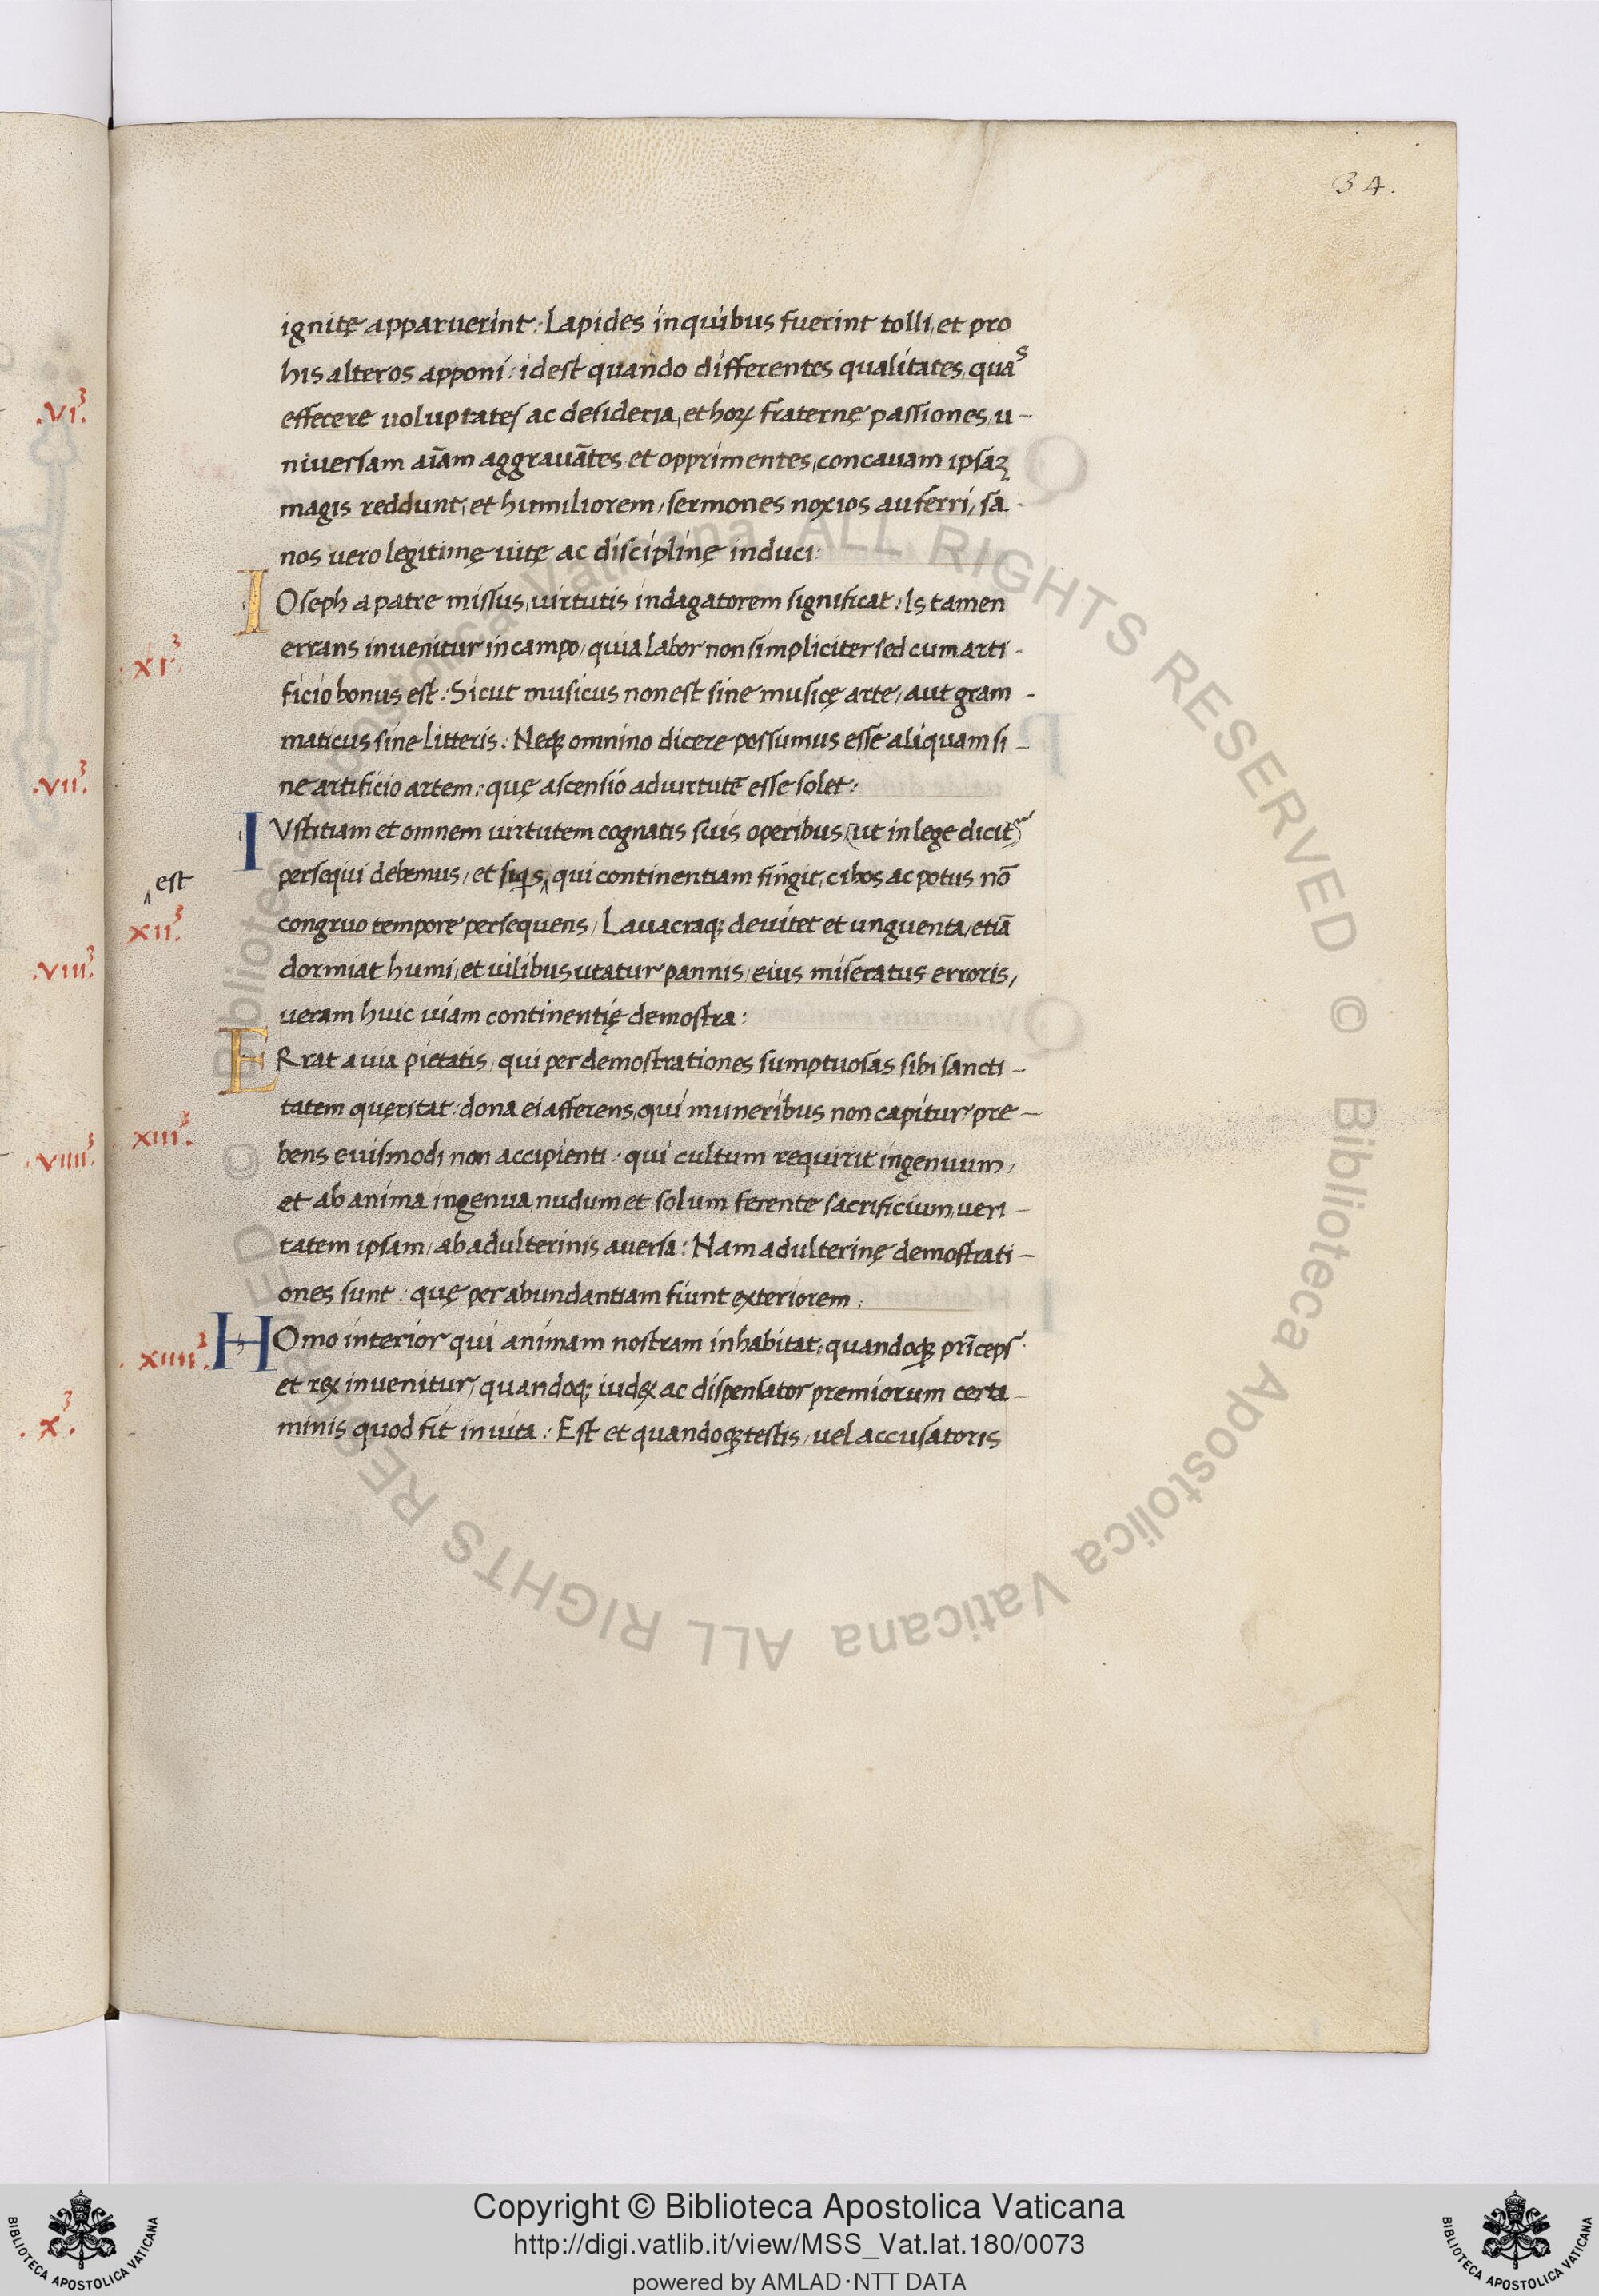 34.
ignitę apparuerint: Lapides in quibus fuerint tolli, et pro
his alteros apponi: idest quando differentes qualitates, quas
effecere uoluptates ac desideria, et horꝝ fraternę passiones, u-
niuersam aīam aggrauātes, et opprimentes, concauam ipsaꝫ
magis reddunt, et humiliorem, sermones noxios auferri, sa-
nos uero legitimę uitę ac disciplinę induci:
.XI.
IOseph a patre missus, uirtutis indagatorem significat: Is tamen
errans inuenitur in campo, quia labor non simpliciter sed cum arti-
ficio bonus est: Sicut musicus non est sine musicę arte, aut gram-
maticus sine litteris: Neqꝫ omnino dicere possumus esse aliquam si-
ne artificio artem: quę ascensio ad uirtutē esse solet:
IVstitiam et omnem uirtutem cognatis suis operibus (ut in lege dicit)
est
persequi debemus, et siqs, qui continentiam fingit, cibos ac potus nō
XII.
congruo tempore persequens, Lauacraqꝫ deuitet et unguenta, etiā
dormiat humi, et uilibus utatur pannis, eius miseratus erroris,
ueram huic uiam continentię demostra:
ERrat a uia pietatis, qui per demostrationes sumptuosas sibi sancti-
tatem queritat: dona ei afferens, qui muneribus non capitur: pre-
XIII.
bens euismodi non accipienti: qui cultum requirit ingenuum,
et ab anima ingenua, nudum et solum ferente sacrificium, ueri-
tatem ipsam, ab adulterinis auersa: Nam adulterinę demostrati-
ones sunt: quę per abundantiam fiunt exteriorem:
.XIIII.
HOmo interior qui animam nostram inhabitat, quandoqꝫ prīceps
et rex inuenitur, quandoqꝫ iudex ac dispensator premiorum certa-
minis quod fit in uita: Est et quandoqꝫ testis, uel accusatoris
.VI.
.VII.
.VIII.
.VIIII.
.X.
© Biblioteca Apostolica Vaticana ALL RIGHTS RESERVED © Biblioteca Apostolica Vaticana ALL RIGHTS RESERVED
Copyright © Biblioteca Apostolica Vaticana
http://digi.vatlib.it/view/MSS_Vat.lat.180/0073
powered by AMLAD·NTT DATA
BIBLIOTECA APOSTOLICA VATICANA
BIBLIOTECA APOSTOLICA VATICANA